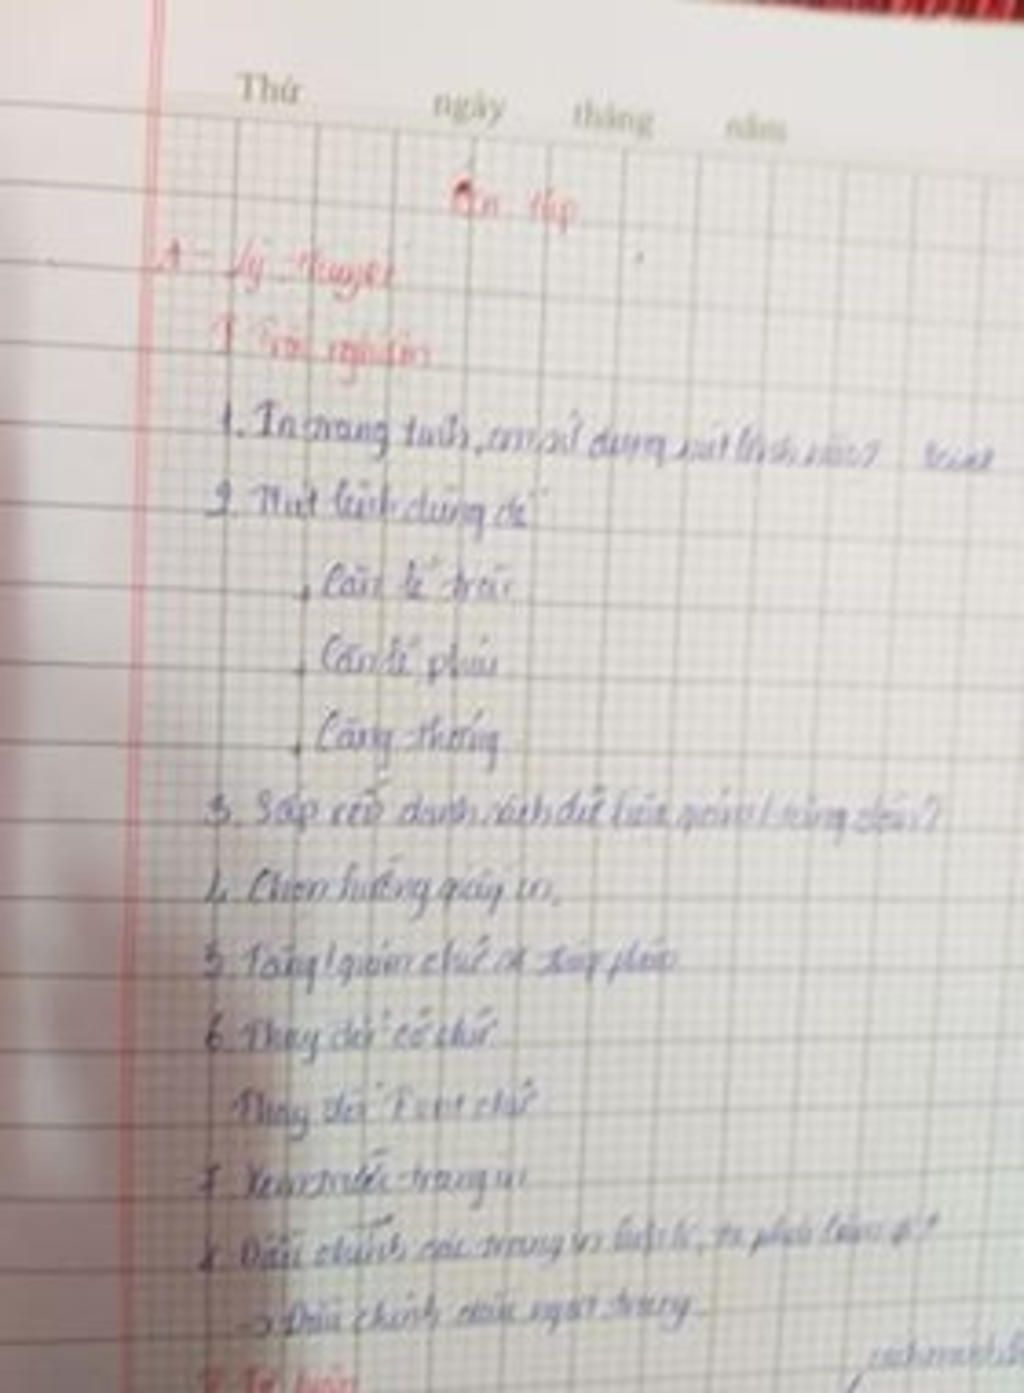 Thứ ngày tháng năm
Ôn tập
A - Lý thuyết
I Trắc nghiệm
1. In trang tính, em sử dụng nút lệnh nào?
2. Nút lệnh dùng để
. Căn lề trái
. Căn lề phải
. Căng thẳng
3. Sắp xếp danh sách dữ liệu giảm / tăng dần?
4. Chọn hướng giấy in.
5. Tăng / giảm chữ số thập phân
6. Thay đổi cỡ chữ
Thay đổi Font chữ
7. Xem trước trang in
8. Điều chỉnh các trang in hợp lí, ta phải làm gì?
-> Điều chỉnh dấu ngắt trang.
Tự luận